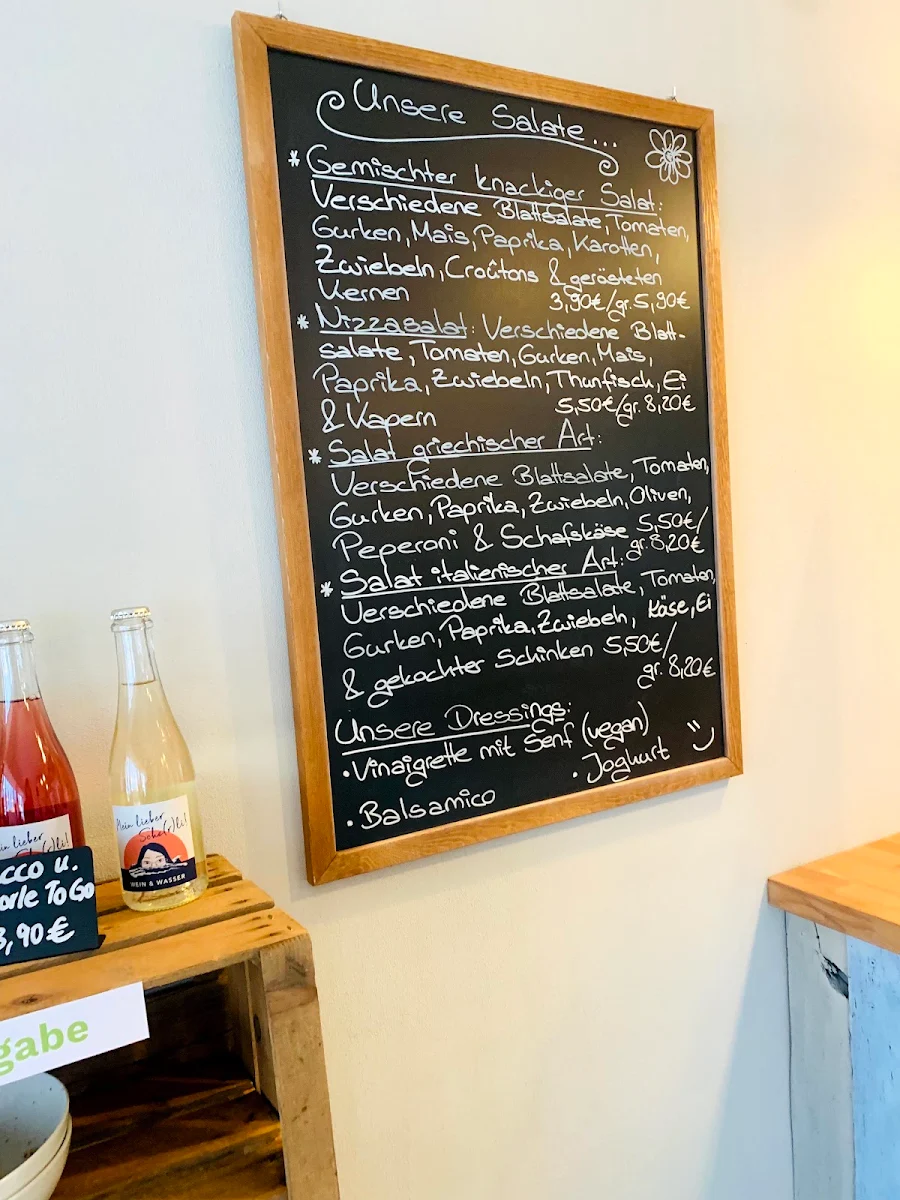 Unsere Salate...
* Gemischter knackiger Salat:
Verschiedene Blattsalate, Tomaten,
Gurken, Mais, Paprika, Karotten,
Zwiebeln, Croûtons & gerösteten
Kernen 3,90€/gr. 5,90€
* Nizzasalat: Verschiedene Blatt-
salate, Tomaten, Gurken, Mais,
Paprika, Zwiebeln, Thunfisch, Ei
& Kapern 5,50€/gr. 8,20€
* Salat griechischer Art:
Verschiedene Blattsalate, Tomaten,
Gurken, Paprika, Zwiebeln, Oliven,
Peperoni & Schafskäse 5,50€/
gr. 8,20€
* Salat italienischer Art:
Verschiedene Blattsalate, Tomaten,
Gurken, Paprika, Zwiebeln, Käse, Ei
& gekochter Schinken 5,50€/
gr. 8,20€
Unsere Dressings:
• Vinaigrette mit Senf (vegan)
• Joghurt
• Balsamico
Mein lieber
Scho(r)li!
WEIN & WASSER
ein lieber
cco u.
orle To Go
3,90€
gabe